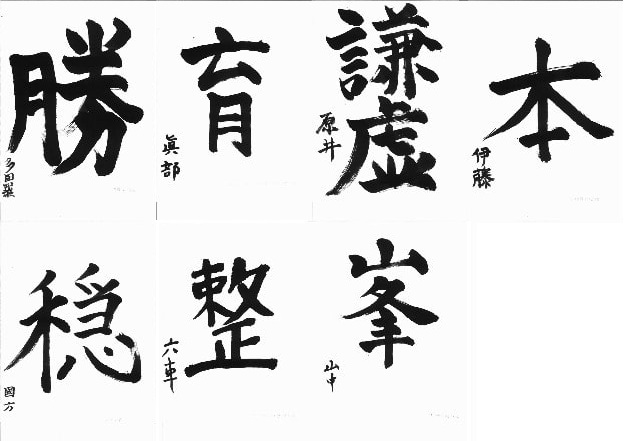 勝
多田羅
育
眞部
謙虚
原井
本
伊藤
穏
国方
整
六車
峯
山中